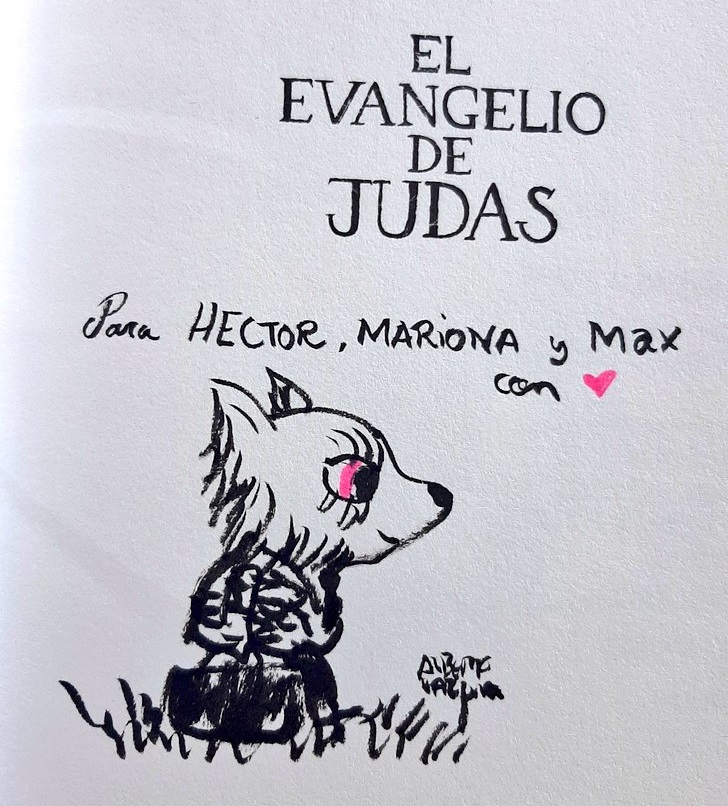 EL
EVANGELIO
DE
JUDAS
Para HECTOR, MARIONA y Max
con